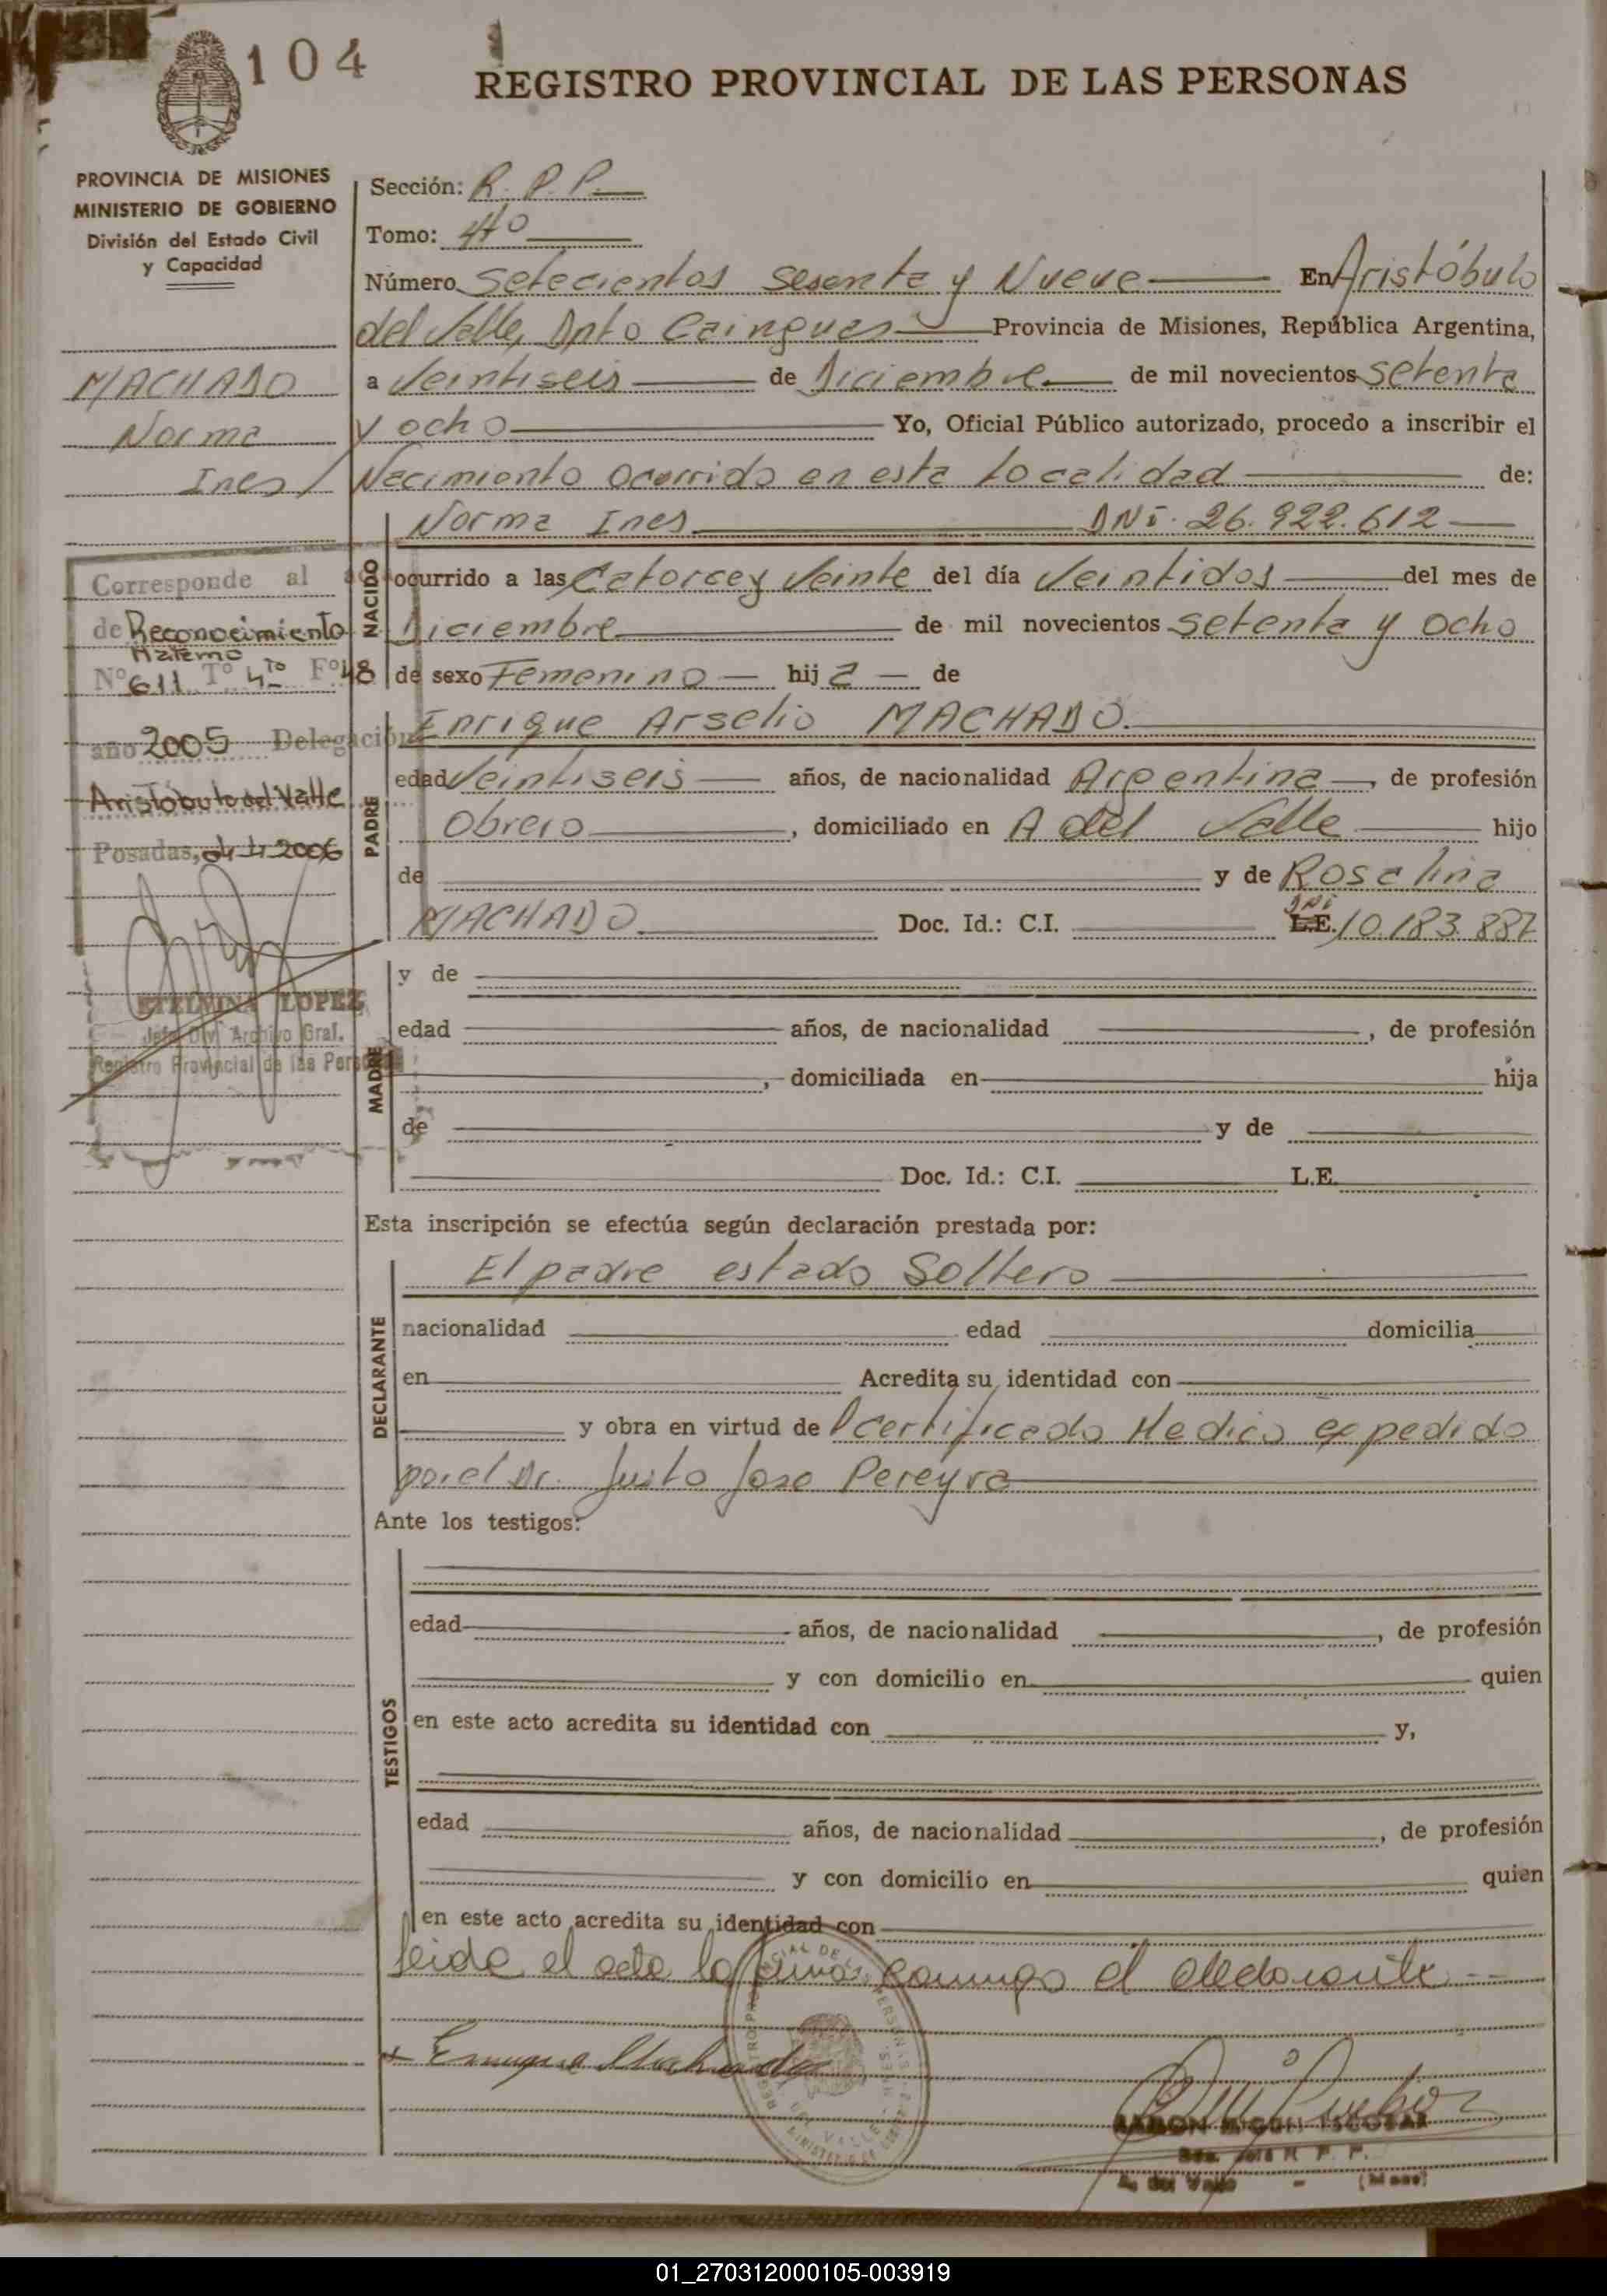 104
REGISTRO PROVINCIAL DE LAS PERSONAS
PROVINCIA DE MISIONES
MINISTERIO DE GOBIERNO
División del Estado Civil
y Capacidad
Sección: R. P. P.
Tomo: 4to
Número Setecientos Sesenta y Nueve En Aristóbulo
del Valle, Dpto Cainguas Provincia de Misiones, República Argentina,
a Veintiseis de Diciembre de mil novecientos setenta
y ocho Yo, Oficial Público autorizado, procedo a inscribir el
Nacimiento ocurrido en esta Localidad de:
MACHADO
Norma
Ines
NACIDO
Norma Ines DNI. 26.922.612
ocurrido a las Catorce y Veinte del día Veintidos del mes de
Diciembre de mil novecientos setenta y ocho
de sexo Femenino hija de
Corresponde al
de Reconocimiento
Materno
Nº 611 Tº 4to Fº 48
año 2005 Delegación
Aristobulo del Valle
Posadas, 2006
ETELVINA LOPEZ
Jefe Div. Archivo Gral.
Registro Provincial de las Personas
PADRE
Enrique Arselio MACHADO.
edad Veintiseis años, de nacionalidad Argentina, de profesión
Obrero, domiciliado en A del Valle hijo
de y de Rosalina
MACHADO Doc. Id.: C.I. L.E. DNI 10.183.887
MADRE
y de
edad años, de nacionalidad , de profesión
, domiciliada en hija
de y de
Doc. Id.: C.I. L.E.
Esta inscripción se efectúa según declaración prestada por:
DECLARANTE
El padre estado Soltero
nacionalidad edad domicilia
en Acredita su identidad con
y obra en virtud de Certificado Medico expedido
por el Dr. Justo Jose Pereyra
Ante los testigos:
TESTIGOS
edad años, de nacionalidad , de profesión
y con domicilio en quien
en este acto acredita su identidad con y,
edad años, de nacionalidad , de profesión
y con domicilio en quien
en este acto acredita su identidad con
Leida el acta la firma conmigo el declarante
Enrique Machado
RAMON MIGUEL ESCOBAR
R. P. P.
A. del Valle - (Mnes)
01_270312000105-003919